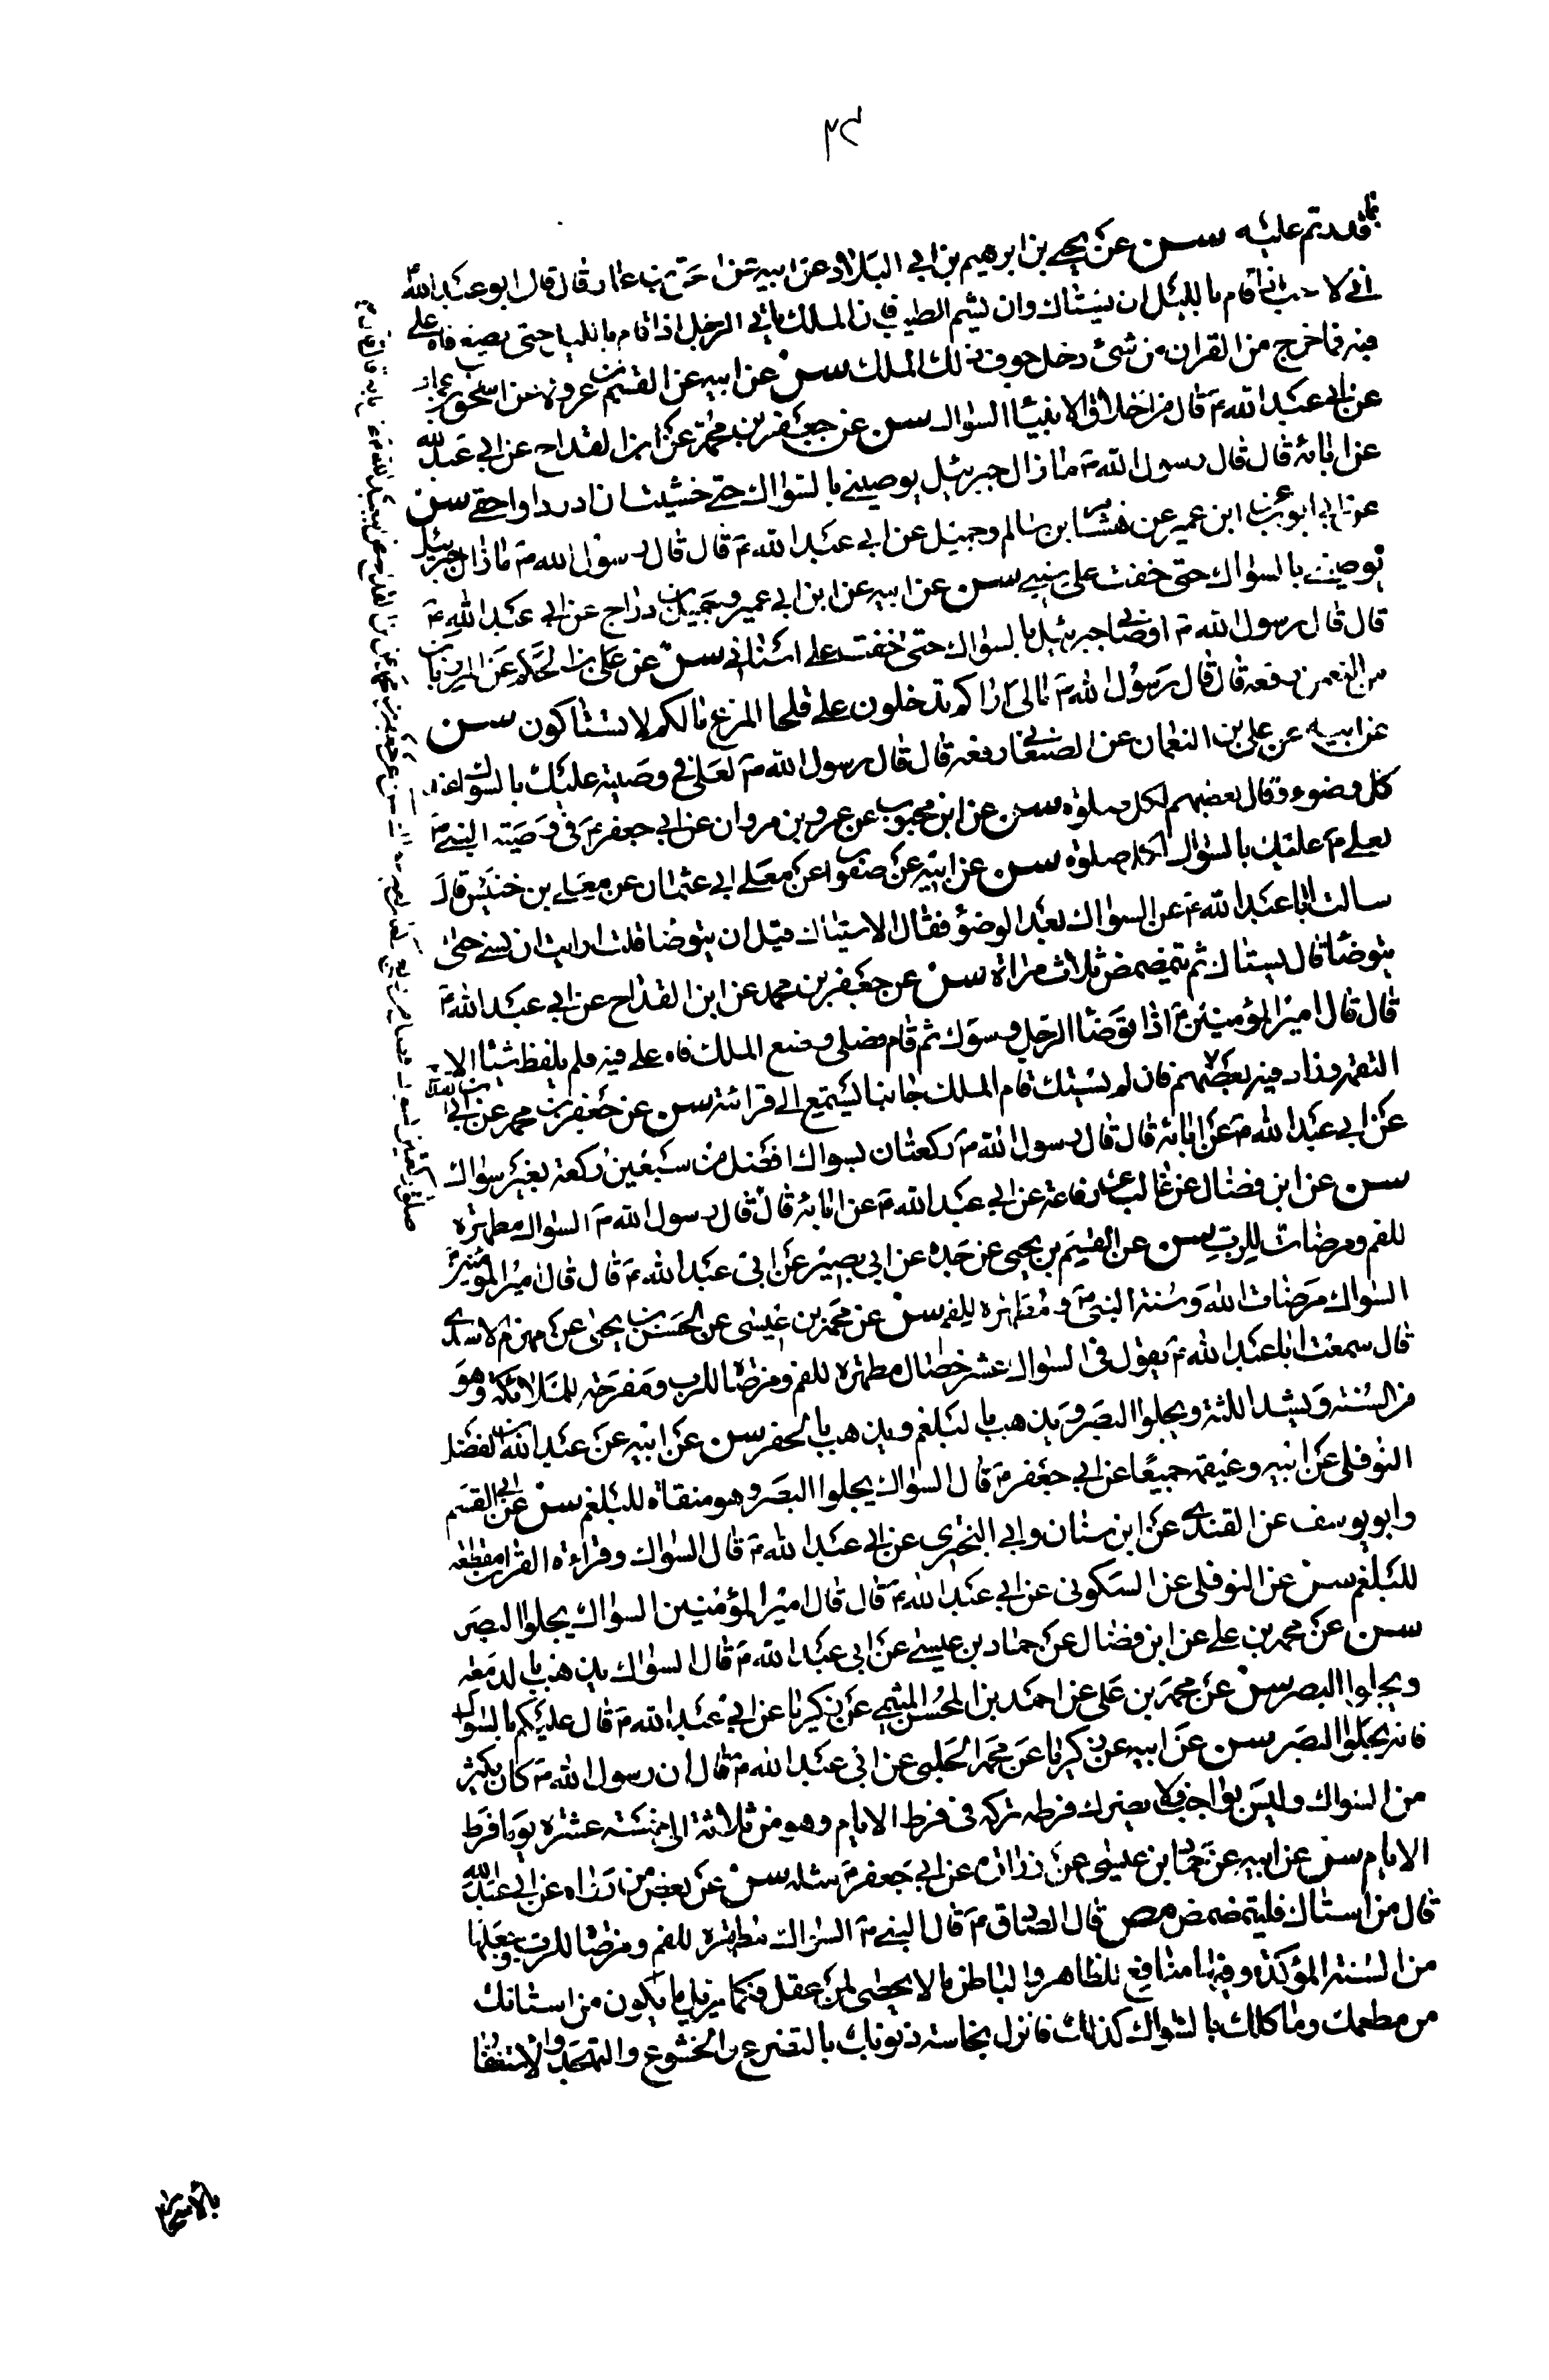 ٣٤
بما قد تم عليه سن عن يحيى بن ابرهيم بن ابي البلاد عن ابيه عن اسحق بن عمار قال قال ابو عبد الله ع
اني لاحب اذا قام بالليل ان يستاك وان يشم الطيب فان الملك ياتي الرجل اذا قام بالليل حتى يضع فاه على
فيه فما خرج من القران من شئ دخل جوف ذلك الملك سن عن ابيه عن القسم بن عروة عن اسحق بن عمار
عن ابي عبد الله ع قال من اخلاق الانبياء السواك سن عن جعفر بن محمد عن ابن القداح عن ابي عبد الله
عن ابائه قال قال رسول الله ص ما زال جبرئيل يوصيني بالسواك حتى خشيت ان ادرد او احفى سن
عن ابي ايوب عن ابن عمير عن هشام بن سالم وجميل عن ابي عبد الله ع قال قال رسول الله ص ما زال جبرئيل
يوصيني بالسواك حتى خفت على سني سن عن ابيه عن ابن ابي عمير وجميل بن دراج عن ابي عبد الله ع
قال قال رسول الله ص اوصاني جبرئيل بالسواك حتى خفت على اسناني سن عن علي بن الحكم عن المرزبان
بن النعمن رفعه قال قال رسول الله ص ما لي اراكم تدخلون على قلحا المرغ ما لكم لا تستاكون سن
عن ابيه عن علي بن النعمان عن الصنعاني رفعه قال قال رسول الله ص لعلي في وصيته عليك بالسواك عند
كل وضوء وقال بعضهم لكل صلوة سن عن ابن محبوب عن عمرو بن مروان عن ابي جعفر ع في وصية النبي ص
لعلي ع عليك بالسواك لكل صلوة سن عن ابيه عن صفوان عن معلى ابي عثمان عن معلى بن خنيس قال
سالت ابا عبد الله ع عن السواك بعد الوضوء فقال الاستياك قبل ان يتوضا قلت ارايت ان نسي حتى
يتوضا قال يستاك ثم يتمضمض ثلاث مراة سن عن جعفر بن محمد عن ابن القداح عن ابي عبد الله ع
قال قال امير المؤمنين ع اذا توضا الرجل وسوك ثم قام فصلى وضع الملك فاه على فيه فلم يلفظ شيئا الا
التقمه وزاد فيه بعضهم فان لم يستك قام الملك جانبا يستمع الى قرائته سن عن جعفر بن محمد عن ابن القداح
عن ابي عبد الله ع عن ابائه قال قال رسول الله ص ركعتان بسواك افضل من سبعين ركعة بغير سواك
سن عن ابن فضال عن غالب عن رفاعة عن ابي عبد الله ع عن ابائه قال قال رسول الله ص السواك مطهرة
للفم ومرضات للرب سن عن القسم بن يحيى عن جده عن ابي بصير عن ابي عبد الله ع قال قال امير المؤمنين ع
السواك مرضات الله وسنة النبي ص ومطهرة للفم سن عن محمد بن عيسى عن الحسن بن يحيى عن مهزم الاسدي
قال سمعت ابا عبد الله ع يقول في السواك عشر خصال مطهرة للفم ومرضاة للرب ومفرحة للملائكة وهو
من السنة ويشد اللثة ويجلوا البصر ويذهب بالبلغم ويذهب بالحفر سن عن ابيه عن عبد الله بن الفضل
النوفلي عن ابيه وعيثمه جميعا عن ابي جعفر ع قال السواك يجلوا البصر وهو منقاة للبلغم سن عن ابي القسم
وابو يوسف عن القندي عن ابن سنان وابي البختري عن ابي عبد الله ع قال السواك وقراءة القران مقطعة
للبلغم سن عن النوفلي عن السكوني عن ابي عبد الله ع قال قال امير المؤمنين السواك يجلوا البصر
سن عن محمد بن علي عن ابن فضال عن حماد بن عيسى عن ابي عبد الله ع قال السواك يذهب بالدمعة
ويجلوا البصر سن عن محمد بن علي عن احمد بن المحسن الميثمي عن زكريا عن ابي عبد الله ع قال عليكم بالسواك
فانه يجلوا البصر سن عن ابيه عن زكريا عن محمد الحلبي عن ابي عبد الله ع قال ان رسول الله ص كان يكثر
من السواك وليس بواجب فلا يضرك فرطه تركه في فرط الايام وهو من ثلاثة الى خمسة عشرة يوما فرط
الايام سن عن ابيه عن حماد بن عيسى عن زرارة عن ابي جعفر ع مثله سن عن بعض من رواه عن ابي عبد الله
قال من استاك فليتمضمض مص قال الصادق ع قال النبي ص السواك مطهرة للفم ومرضاة للرب وجعلها
من السنة المؤكدة وفيها منافع للظاهر والباطن ما لا يحصى لمن عقل فكما يزيل ما يكون من اسنانك
من مطعمك وماكلك بالسواك كذلك فانزل نجاسة ذنوبك بالتضرع والخشوع والتهجد والاستغفار
بالاسحار